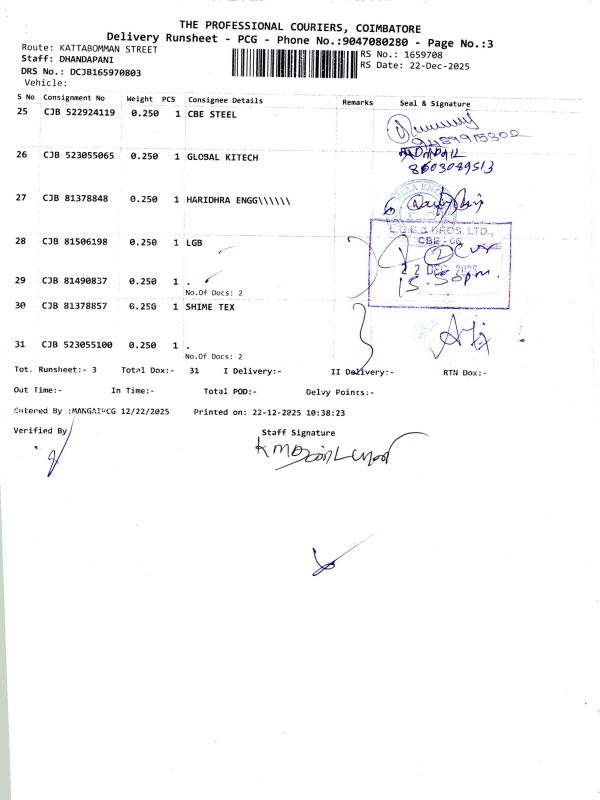 THE PROFESSIONAL COURIERS, COIMBATORE
Delivery Runsheet - PCG - Phone No.:9047080280 - Page No.:3
Route: KATTABOMMAN STREET
RS No.: 1659708
Staff: DHANDAPANI
RS Date: 22-Dec-2025
DRS No.: DCJB165970803
Vehicle:
S No Consignment No Weight PCS Consignee Details Remarks Seal & Signature
25 CJB 522924119 0.250 1 CBE STEEL
26 CJB 523055065 0.250 1 GLOBAL KITECH
8603089513
27 CJB 81378848 0.250 1 HARIDHRA ENGG\\\\\\
L.G.B & BROS. LTD.,
28 CJB 81506198 0.250 1 LGB
CBE - 06
22 DEC 2025
29 CJB 81490837 0.250 1 .
15.50pm.
No.Of Docs: 2
30 CJB 81378857 0.250 1 SHIME TEX
31 CJB 523055100 0.250 1 .
No.Of Docs: 2
Tot. Runsheet:- 3 Total Dox:- 31 I Delivery:- II Delivery:- RTN Dox:-
Out Time:- In Time:- Total POD:- Delvy Points:-
Entered By :MANGAIPCG 12/22/2025 Printed on: 22-12-2025 10:38:23
Verified By Staff Signature